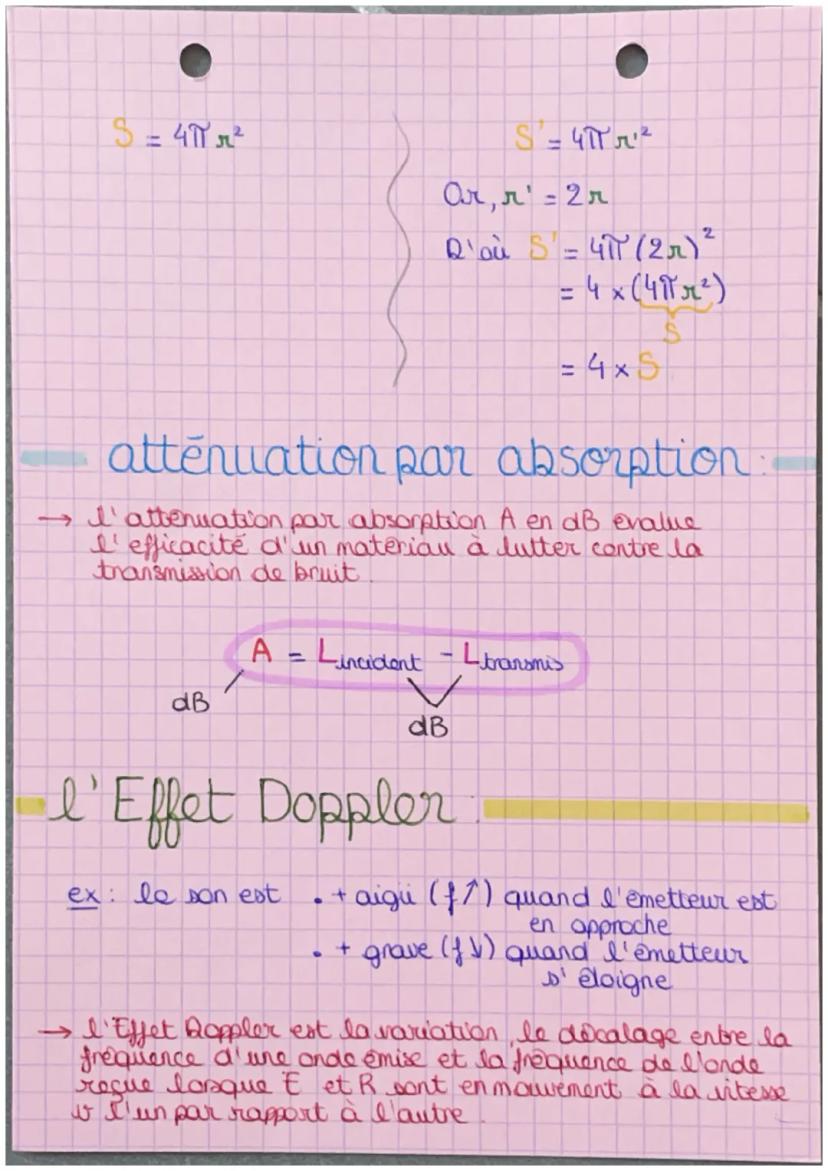 S = 4π r²
S' = 4π r'²
Or, r' = 2r
D'où S' = 4π (2r)²
= 4 × (4π r²)
S
= 4 × S
atténuation par absorption :
→ l'atténuation par absorption A en dB évalue
l'efficacité d'un matériau à lutter contre la
transmission de bruit.
A = Lincident - Ltransmis
dB
dB
l'Effet Doppler :
ex : le son est • + aigü (f↑) quand l'émetteur est
en approche
• + grave (f↓) quand l'émetteur
s'éloigne
→ l'Effet Doppler est la variation, le décalage entre la
fréquence d'une onde émise et la fréquence de l'onde
reçue lorsque E et R sont en mouvement à la vitesse
v l'un par rapport à l'autre.